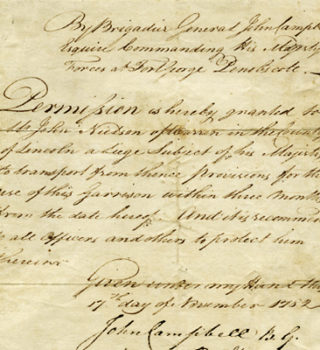 By Brigadier General John Campb
Esquire Commanding His Majest
Forces at Fort George Penobscote
Permission is hereby granted to
Mr John Nielson of Warren in the County
of Lincoln a Liege Subject of his Majest
to transport from thence Provisions for the
use of this Garrison within three Month
from the date hereof. And it is recomm
to all Officers and others to protect him
therein
Given under my Hand th
17th day of November 1782
John Campbell B. G.